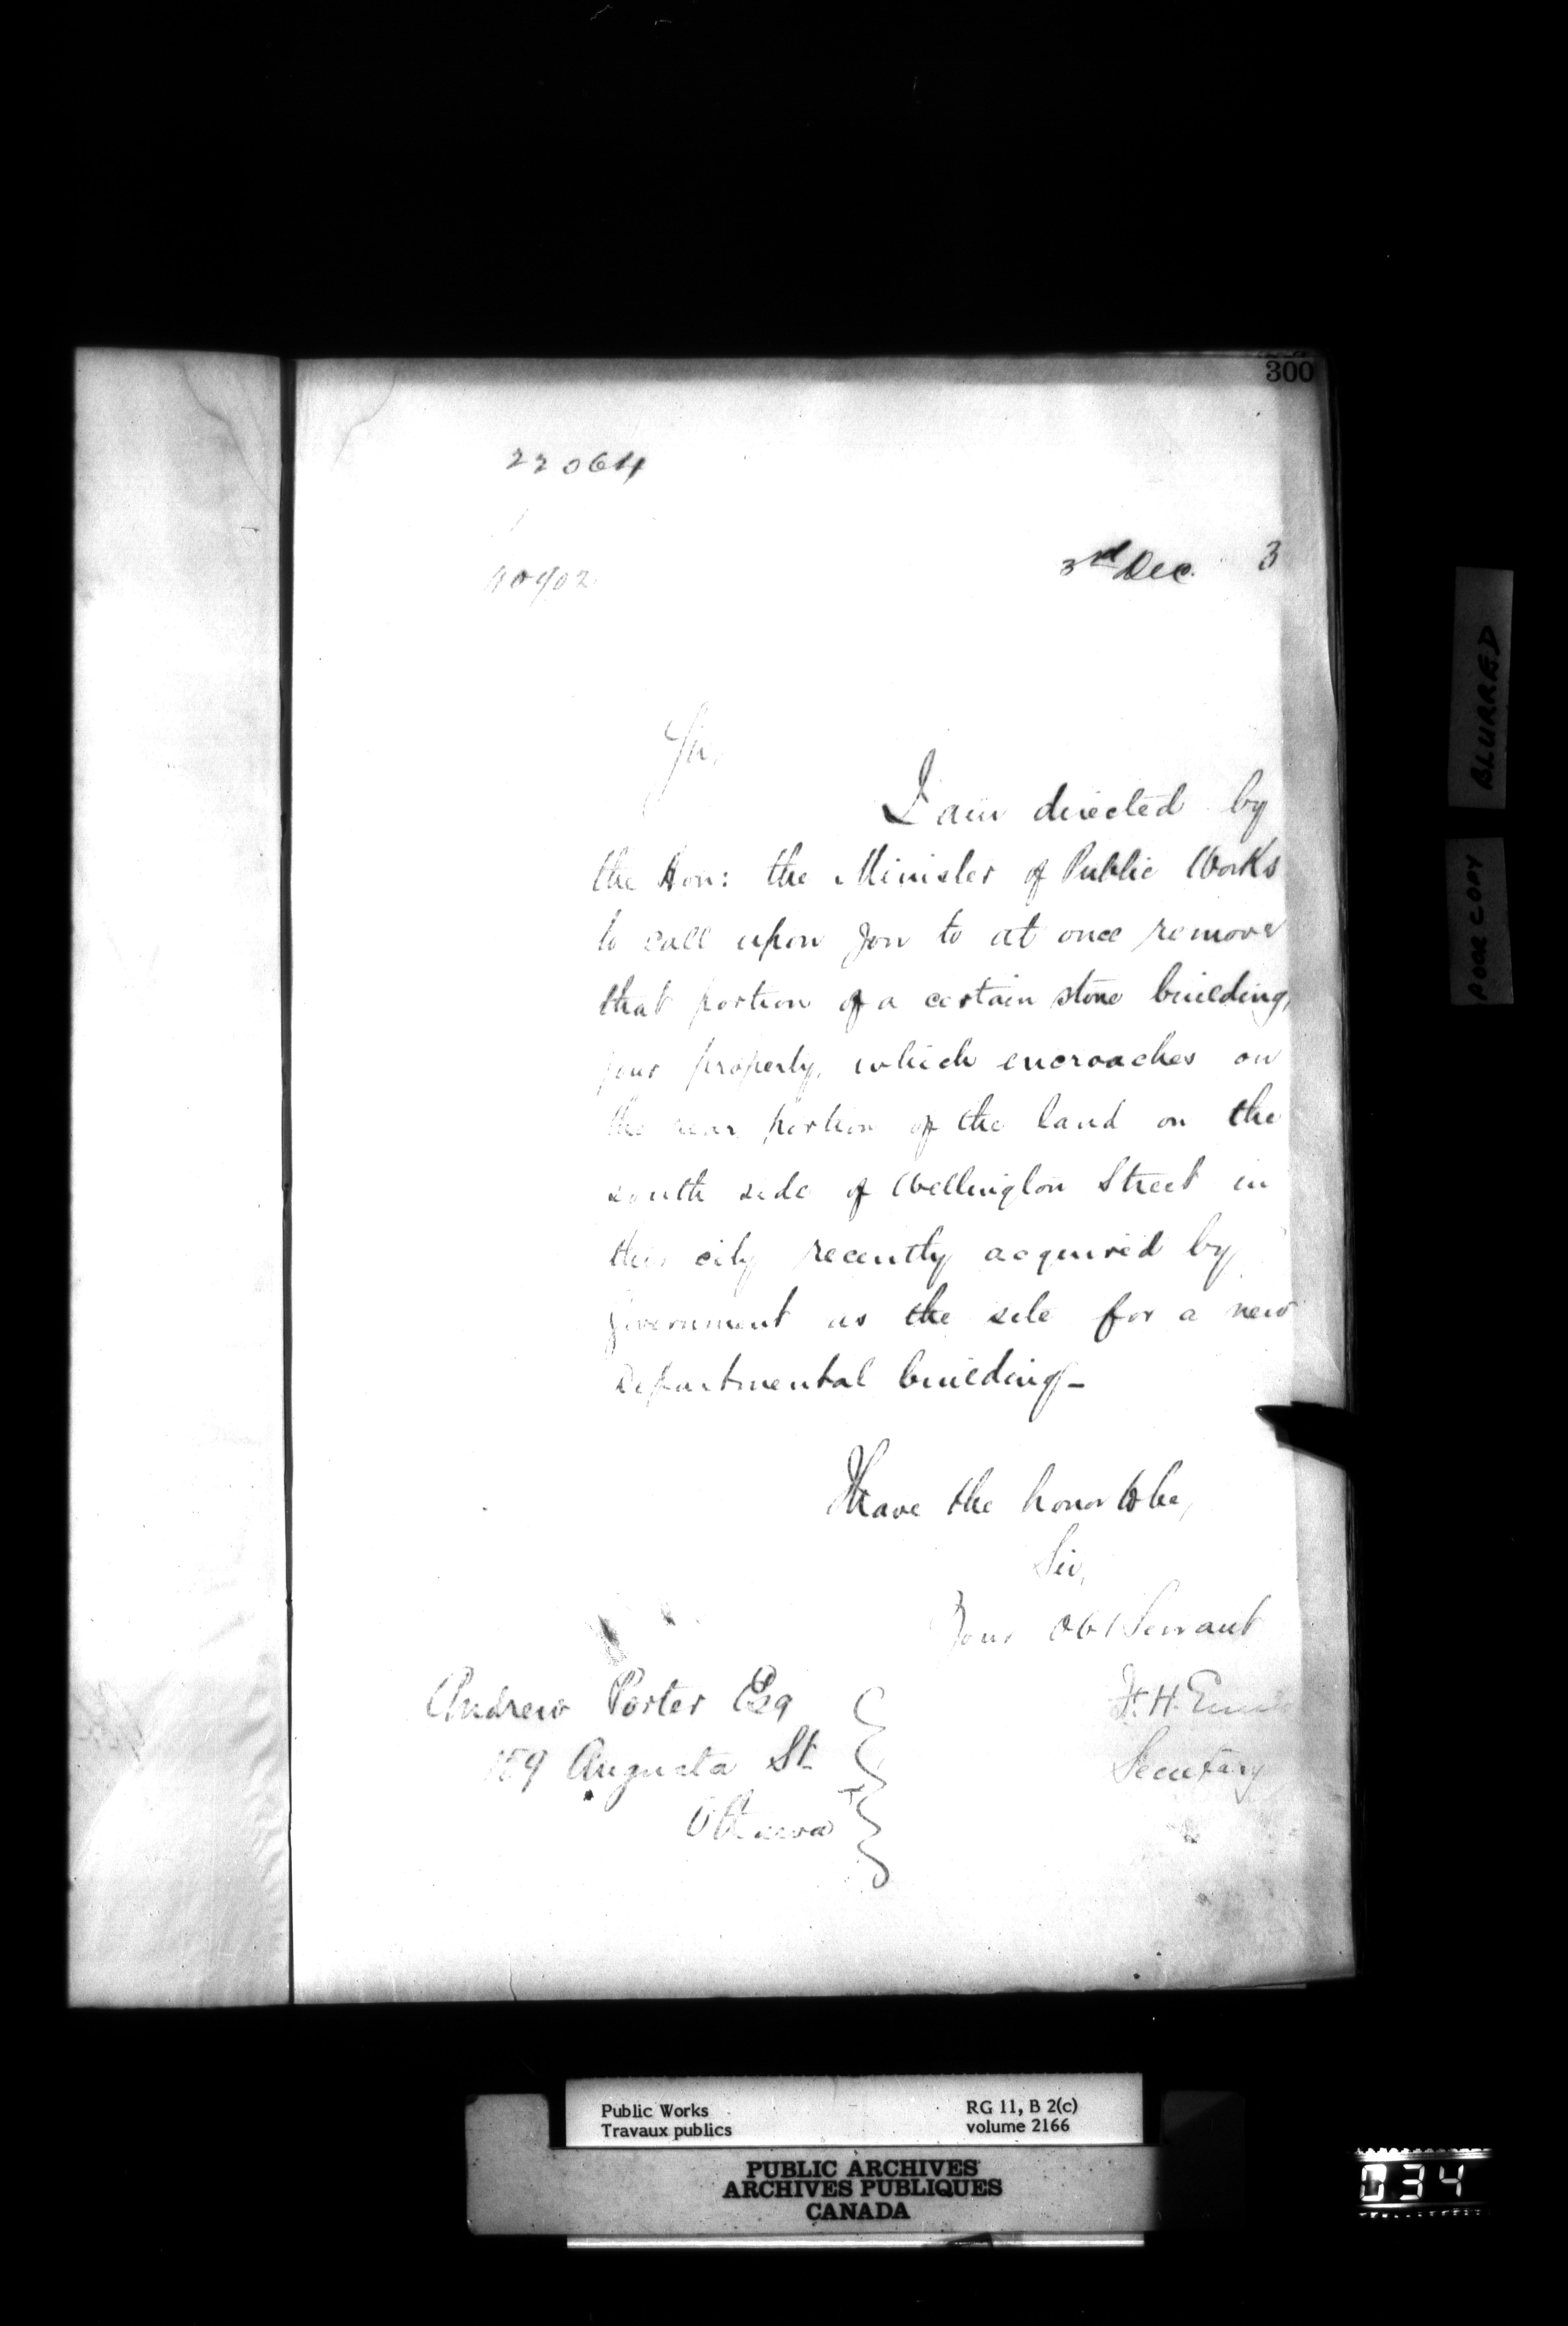 300
22064
3rd Dec. 3
Sir,
I am directed by
the Hon: the Minister of Public Works
to call upon you to at once remove
that portion of a certain stone building,
your property, which encroaches on
the rear portion of the land on the
south side of Wellington Street in
this city recently acquired by
Government as the site for a new
Departmental building _
I have the honor to be,
Sir,
Your Obt Servant
F. H. Ennis
Secretary
Andrew Porter Esq
159 Augusta St
Ottawa
BLURRED
POOR COPY
Public Works
Travaux publics
RG 11, B 2(c)
volume 2166
PUBLIC ARCHIVES
ARCHIVES PUBLIQUES
CANADA
034